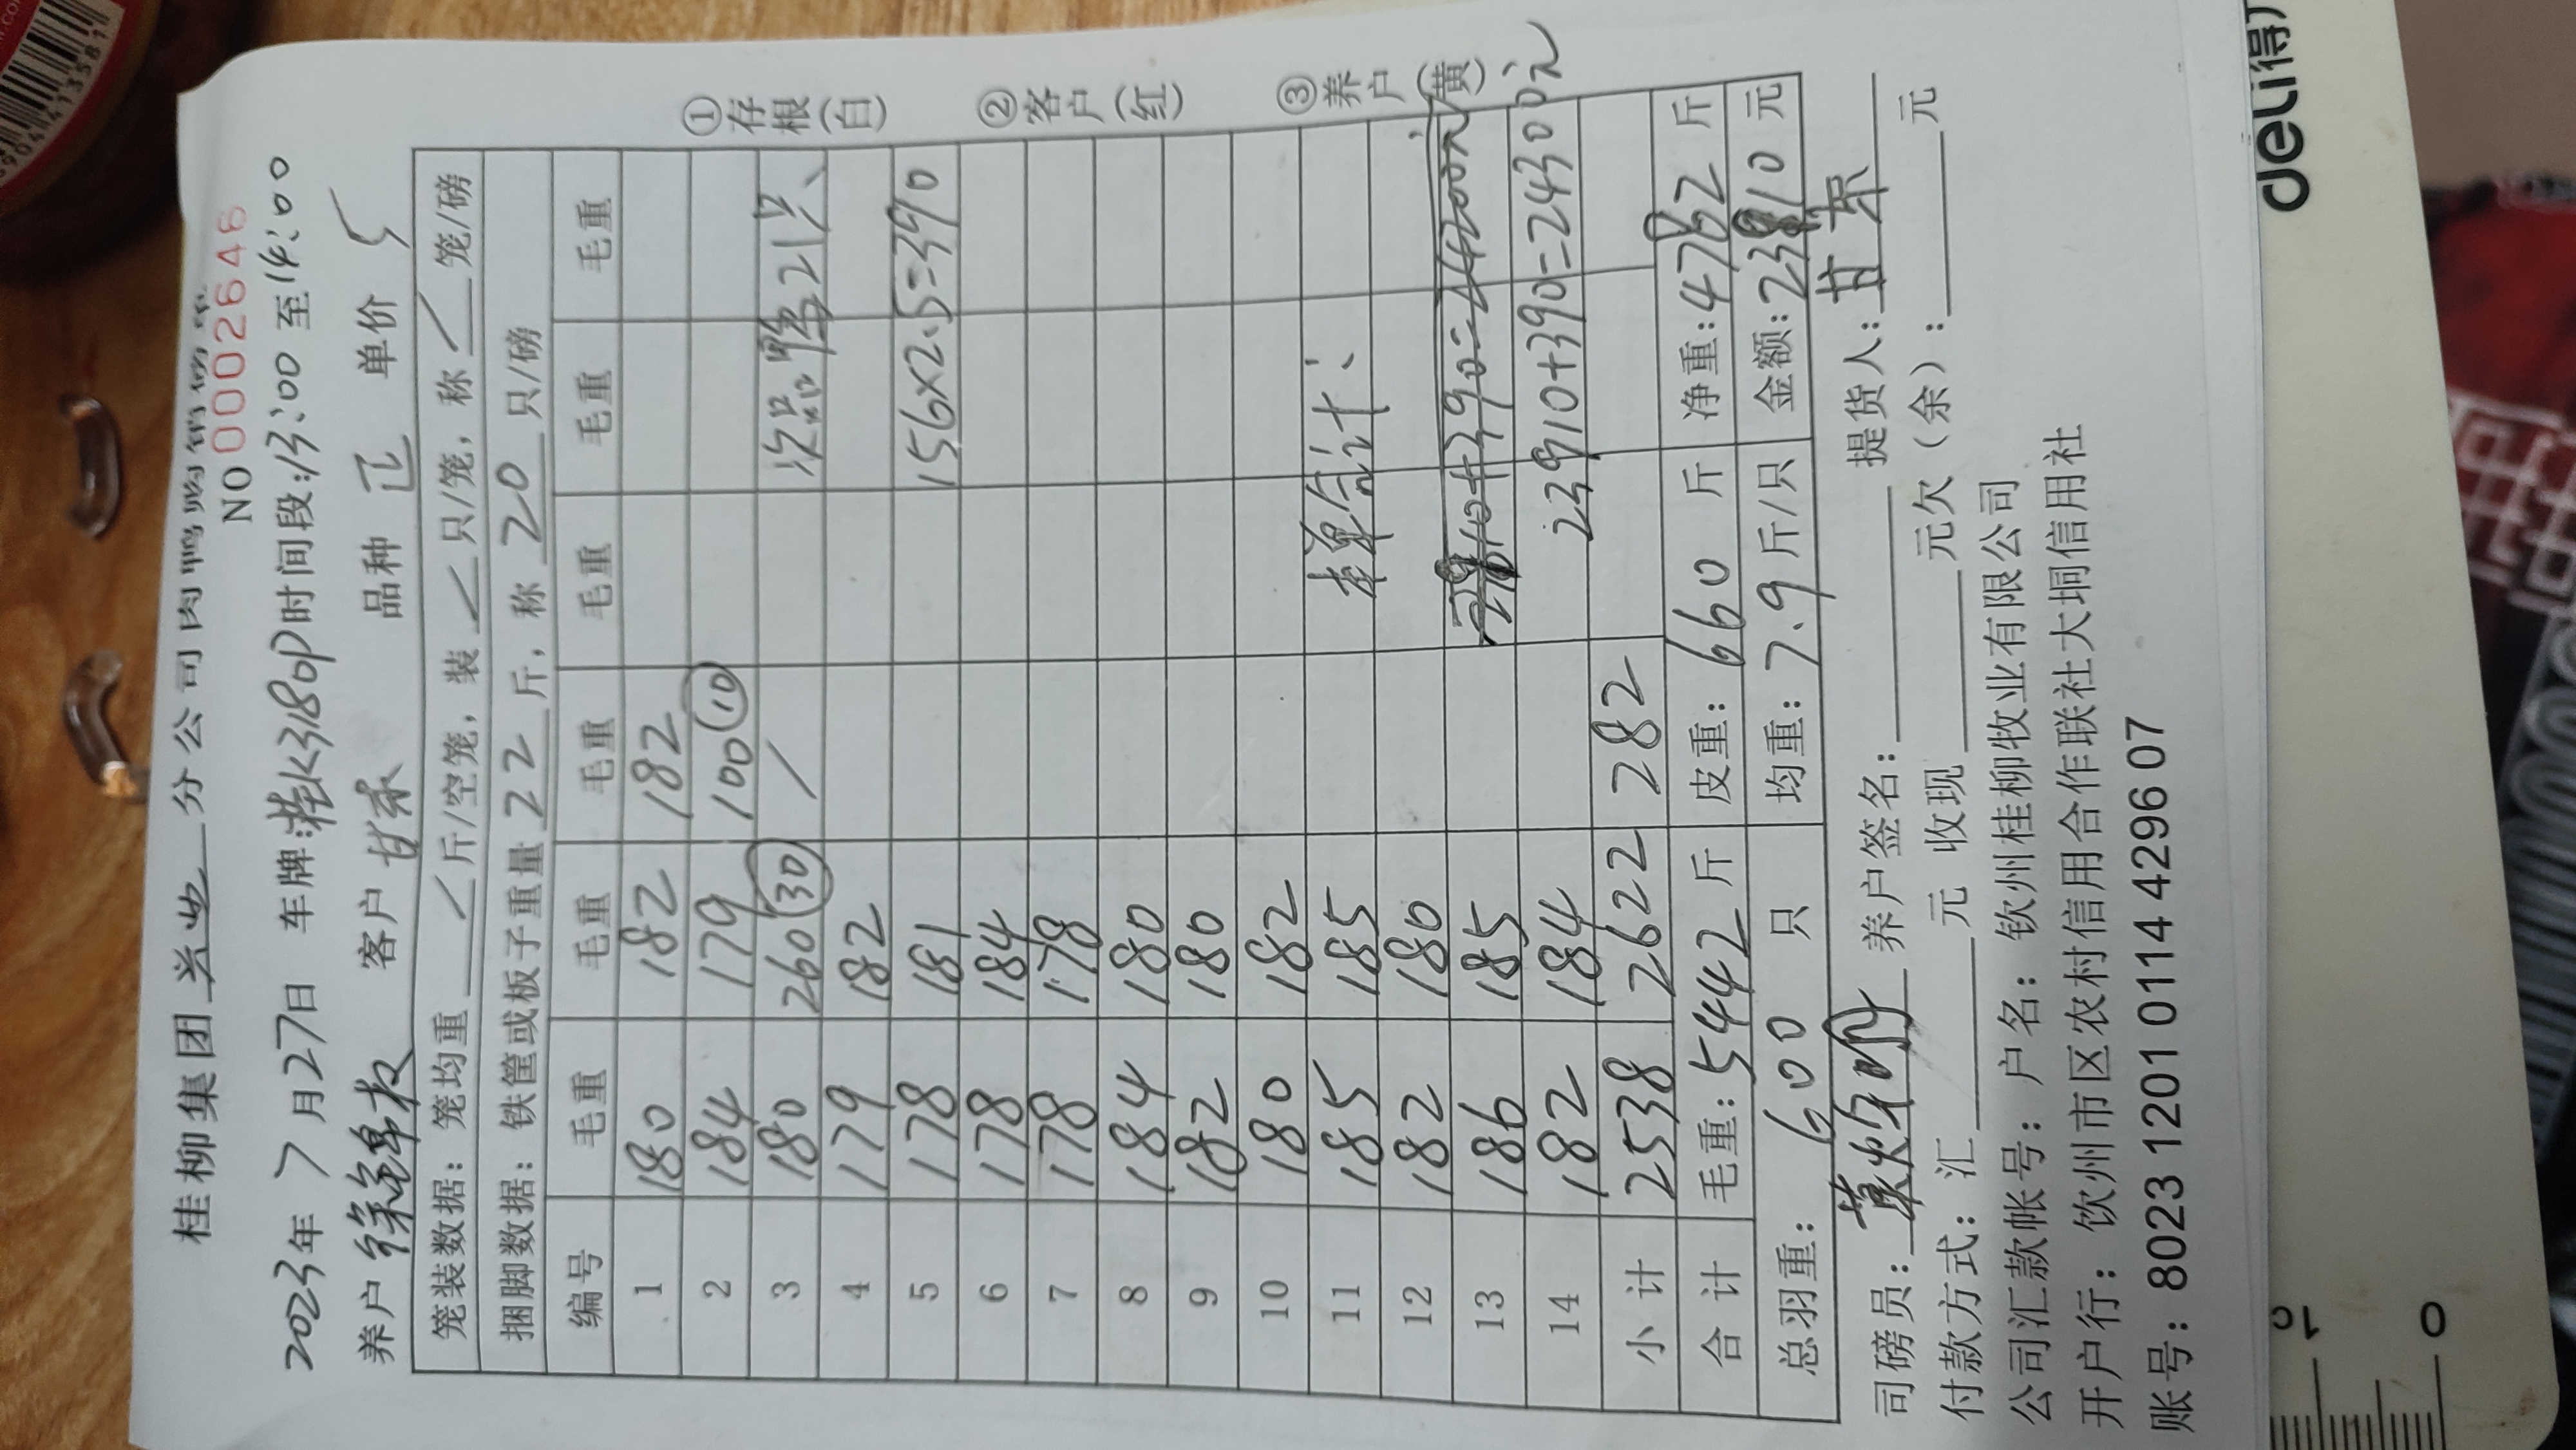 桂柳集团 兴业 分公司肉鸭购销榜单
NO 0002646
2023年 7月27日 车牌:桂K3180P 时间段:13:00 至 14:00
养户 客户 甘东 品种 正 单价 5
笼装数据: 笼均重 / 斤/空笼, 装 / 只/笼, 称 / 笼/磅
捆脚数据: 铁筐或板子重量 22 斤, 称 20 只/磅
编号 毛重 毛重 毛重 毛重 毛重 毛重
1 180 182 182
2 184 179 100 (10)
3 180 260 (30) / 次品鸭21只、
4 179 182
5 178 181 156×2.5=390
6 178 184
7 178 178
8 184 180
9 182 180
10 180 182
11 185 185 本单合计:
12 182 180
13 186 185
14 182 184 23910+390=24300元
小计 2538 2622 282
合计 毛重:5442 斤 皮重:660 斤 净重:4782 斤
总羽重: 600 只 均重:7.9 斤/只 金额:23910 元
①存根(白) ②客户(红) ③养户(黄)
司磅员: 养户签名: 提货人:甘东
付款方式: 汇 元 收现 元欠(余): 元
公司汇款帐号: 户名: 钦州桂柳牧业有限公司
开户行: 钦州市区农村信用合作联社大垌信用社
账号: 8023 1201 0114 4296 07
deli得力
0